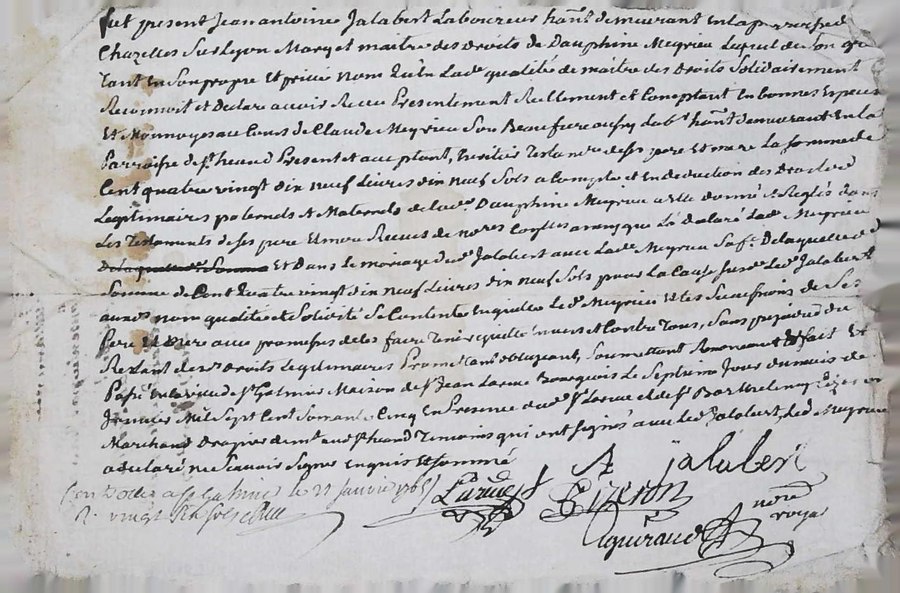 fut present Jean antoine Jalabert Laboureur hant demeurant En la parroisse d
Chazelles Sur Lyon Mary et maitre des droits de Dauphine Meyrieu Lequel de Son
tant En Son propre Et privé nom qu'En Lad qualité de maitre des Droits Solidairement
Reconnoit et Declare avoir Receu Presentement Reellement et Comptant En bonnes Especes
Et Monnoyes au Cours de Claude Meyrieu Son Beaufrere aussy Labr hant demeurant En la
Parroisse de St heand Present et acceptant, heritier Testamre de Ses pere Et mere La Somme de
Cent quatre vingt dix neuf Livres dix neuf Sols a Compte et En deduction des Droits d
Legitimaires paternels Et Maternels de lad Dauphine Meyrieu a Elle donné & Reglés dans
Les Testaments de Ses pere Et mere Receus de nores ainsy que L'a declaré Led Meyrieu
de la quelle Somme Et Dans le mariage dud Jalabert avec Lad Meyrieu Sa fe De laquelle d
Somme de Cent quatre vingt dix neuf Livres dix neuf Sols pour la Cause Susd Led Jalabert
aux nom qualité et Solidité Se Contente En quitte Le d Meyrieu Et les Successions de Ses
Pere Et Mere avec promesses de les faire Tenir quitte Envers et Contre Tous, Sans prejudice du
Restant des Droits Legitimaires Promett ant obligeant, Soumettant Renonceant & fait Et
Passé En la ville de St Galmier Maison de Sr Jean Larue Bourgeois Le Septieme Jour du mois de
Janvier Mil Sept Cent Soixante Cinq En Presence dud Sr Larue et de Sr Barthelemy Gizeron
Marchand Drapier demt aud St heand Temoins qui ont Signés avec Led Jalabert, Led Meyrieu
a declaré ne Scavoir Signer Enquis Et Sommé
Controllé a St Galmier le 21 janvier 1765
R. vingt Six sols
Larue
jalabert
Gizeron
nore
royal